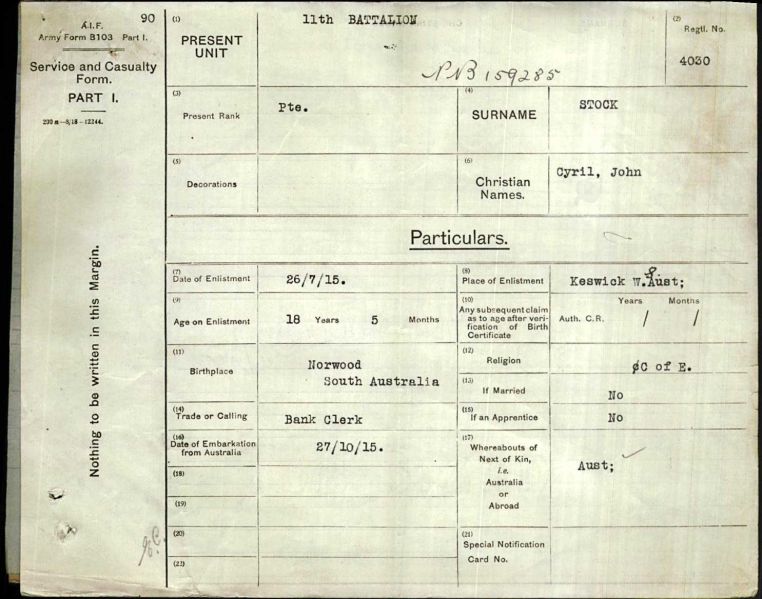 90
A.I.F.
Army Form B103 Part I.
Service and Casualty
Form.
PART I.
200 m—8/18—12244.
Nothing to be written in this Margin.
(1)
PRESENT
UNIT
11th BATTALION
PNB 159285
(2)
Regtl. No.
4030
(3)
Present Rank
Pte.
(4)
SURNAME
STOCK
(5)
Decorations
(6)
Christian
Names.
Cyril, John
Particulars.
(7)
Date of Enlistment
26/7/15.
(8)
Place of Enlistment
Keswick W.Aust;
(9)
Age on Enlistment
18 Years 5 Months
(10)
Any subsequent claim
as to age after veri-
fication of Birth
Certificate
Auth. C.R.
Years Months
/ /
(11)
Birthplace
Norwood
South Australia
(12)
Religion
C of E.
(13)
If Married
No
(14)
Trade or Calling
Bank Clerk
(15)
If an Apprentice
No
(16)
Date of Embarkation
from Australia
27/10/15.
(17)
Whereabouts of
Next of Kin,
i.e.
Australia
or
Abroad
Aust;
(18)
(19)
(20)
(21)
Special Notification
Card No.
(22)